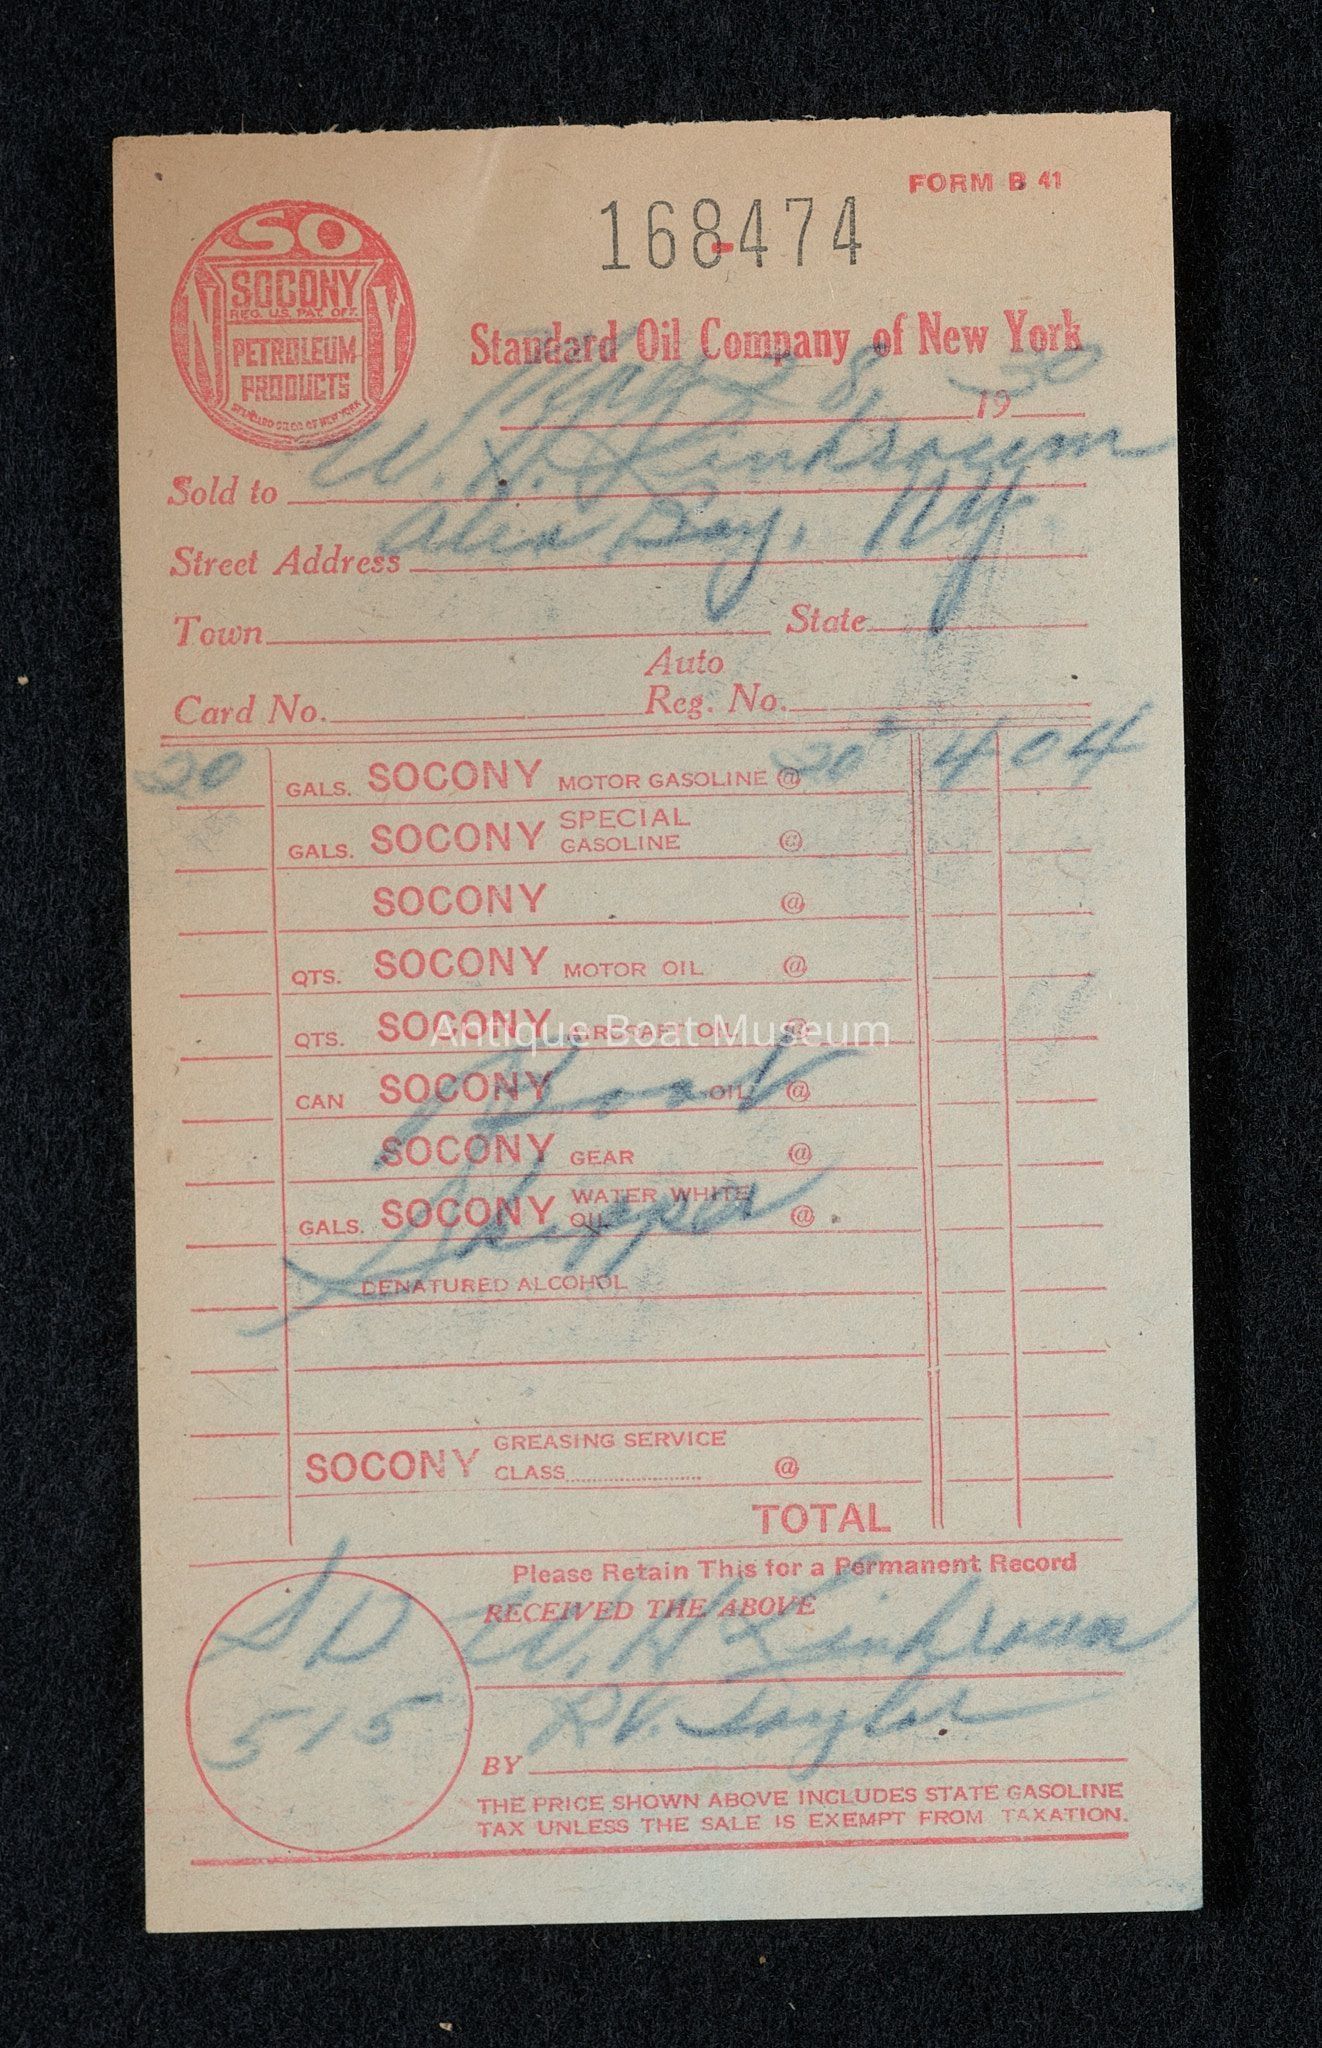 FORM B 41
168474
SO
SOCONY
REG. U.S. PAT. OFF.
PETROLEUM
PRODUCTS
STANDARD OIL CO. OF NEW YORK
N Y
Standard Oil Company of New York
8, 1930
Sold to W. H.
Street Address Alex Bay, NY.
Town State
Auto
Card No. Reg. No.
20 GALS. SOCONY MOTOR GASOLINE @ 20 4 04
GALS. SOCONY SPECIAL GASOLINE @
SOCONY @
QTS. SOCONY MOTOR OIL @
QTS. SOCONY AIRCRAFT OIL @
Antique Boat Museum
CAN SOCONY OIL @
Boat
SOCONY GEAR @
GALS. SOCONY WATER WHITE OIL @
DENATURED ALCOHOL
SOCONY GREASING SERVICE
CLASS @
TOTAL
Please Retain This for a Permanent Record
RECEIVED THE ABOVE
W. H.
SD
515
BY R V. Taylor
THE PRICE SHOWN ABOVE INCLUDES STATE GASOLINE
TAX UNLESS THE SALE IS EXEMPT FROM TAXATION.